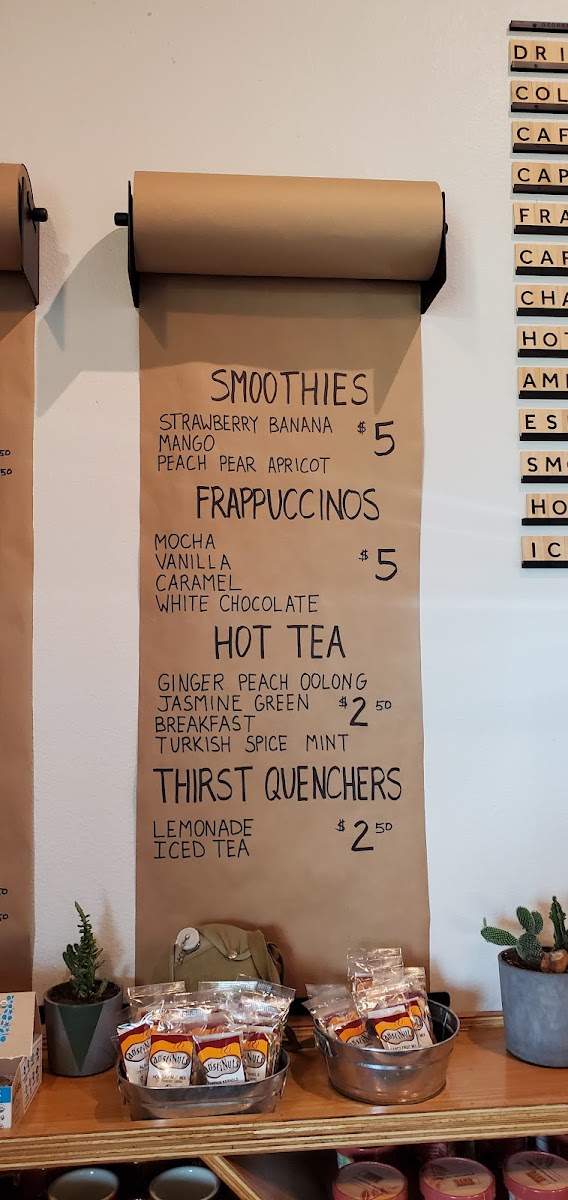 SMOOTHIES
STRAWBERRY BANANA
MANGO
PEACH PEAR APRICOT
$5
FRAPPUCCINOS
MOCHA
VANILLA
CARAMEL
WHITE CHOCOLATE
$5
HOT TEA
GINGER PEACH OOLONG
JASMINE GREEN
BREAKFAST
TURKISH SPICE MINT
$2 50
THIRST QUENCHERS
LEMONADE
ICED TEA
$2 50
DRI
COL
CAF
CAP
FRA
CAR
CHA
HOT
AM
ES
SMO
HO
IC
50
50